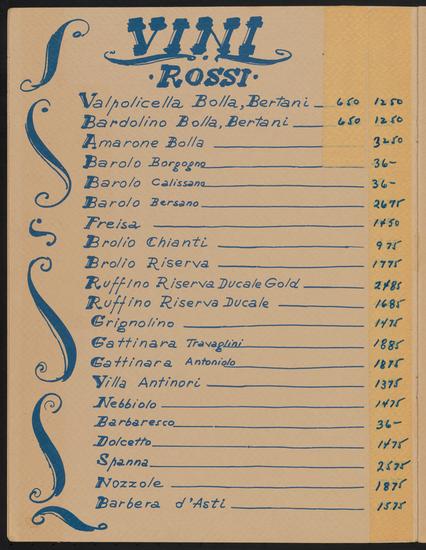 VINI
·ROSSI·
Valpolicella Bolla, Bertani 650 1250
Bardolino Bolla, Bertani 650 1250
Amarone Bolla 3250
Barolo Borgogno 36-
Barolo Calissano 36-
Barolo Bersano 2675
Freisa 1450
Brolio Chianti 975
Brolio Riserva 1775
Ruffino Riserva Ducale Gold 2485
Ruffino Riserva Ducale 1685
Grignolino 1475
Gattinara Travaglini 1885
Gattinara Antoniolo 1875
Villa Antinori 1375
Nebbiolo 1475
Barbaresco 36-
Dolcetto 1475
Spanna 2575
Nozzole 1875
Barbera d'Asti 1575